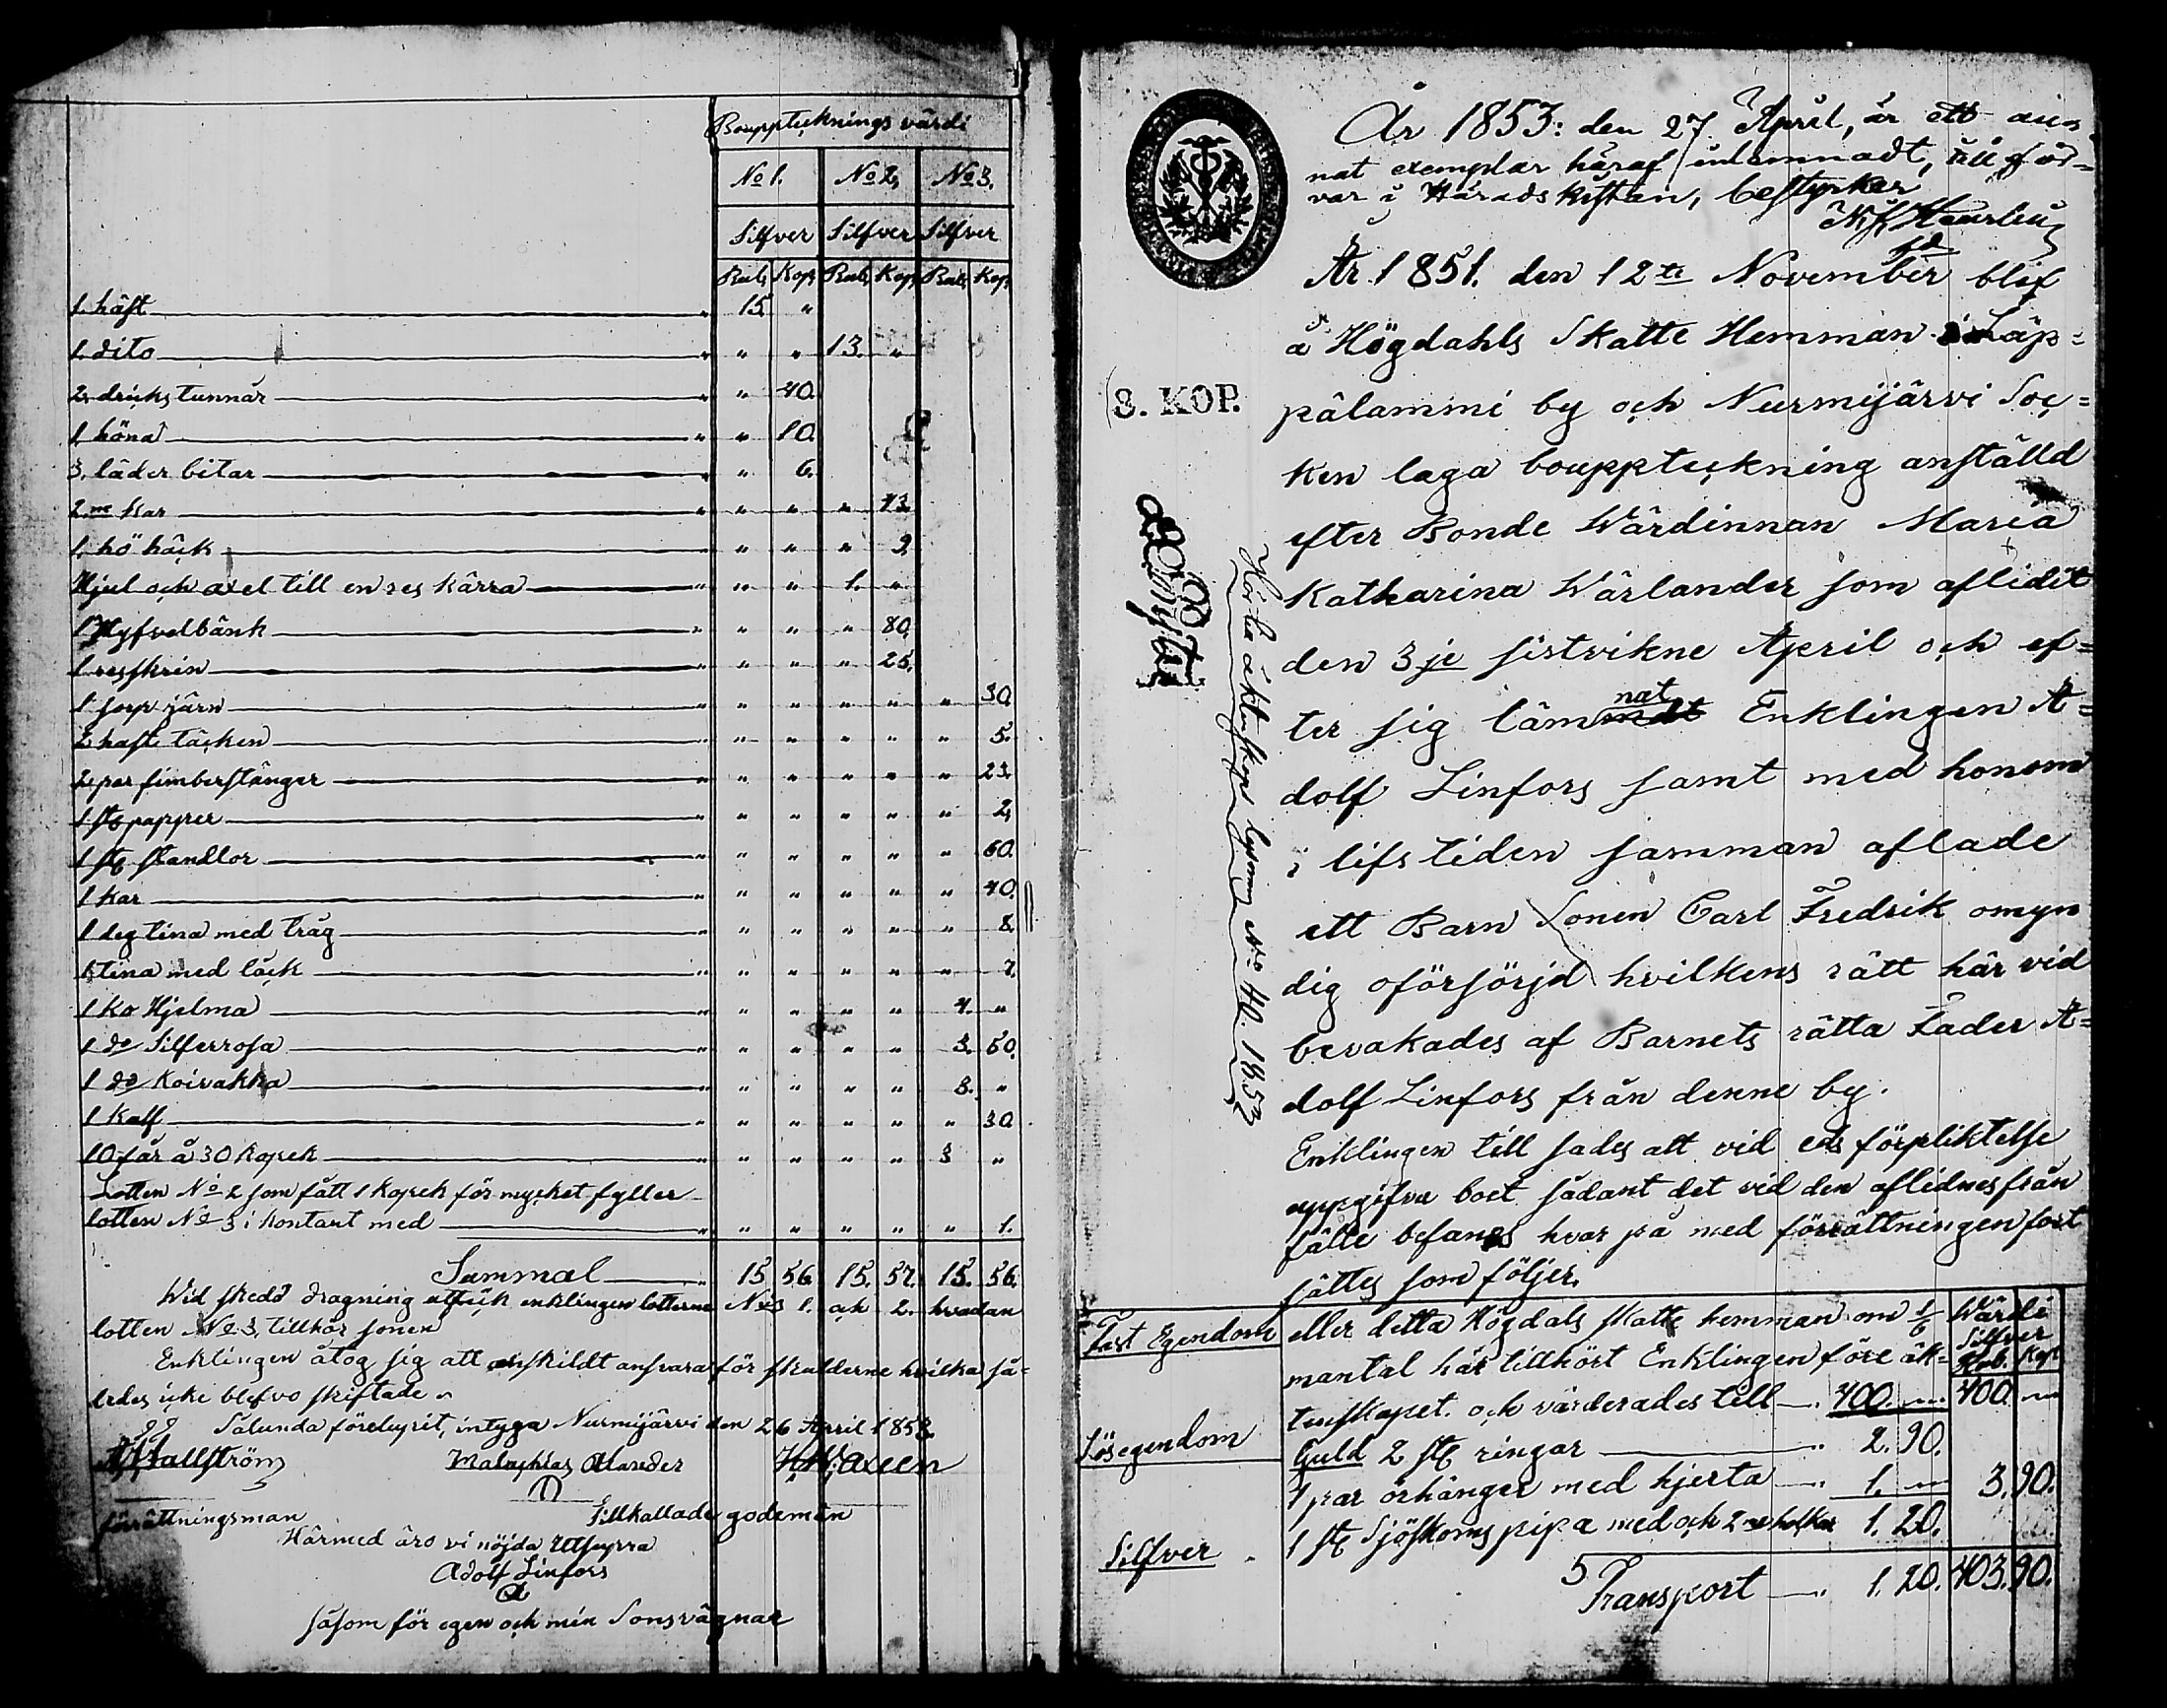 Bouppteknings värdi
No 1. No 2, No 3.
Silfver Silfver Silfver
Rub, Kop, Rub, Kop, Rub, Kop,
1. häst " 15. "
1. dito " " " 13. "
2, drickstunnar " " 40.
1, höna " " 10.
3, läder bitar " " 6.
2 ne kar " " " " 43.
1. hö häck " " " " 9.
Hjul och axel till en res kärra " " " 1. "
1 Hyfvelbänk " " " " 80.
1 resskrin " " " " 25.
1 järn " " " " " " 30.
2, häst täcken " " " " " " 5.
2, par fimberstänger " " " " " " 23.
1 st papper " " " " " " 2,
1 st standlor " " " " " " 60.
1 kar " " " " " " 40.
1 deg tina med tråg " " " " " " 8.
1, tina med läck " " " " " " 7.
1 ko Hjelma " " " " " 4. "
1 do Silferrosa " " " " " 3. 50.
1 do Koivakka " " " " " 3. "
1 kalf " " " " " " 30.
10 får à 30 kopek " " " " " 3 "
Lotten No 2 som fått 1 kopek för mycket fyller
lotten No 3 i kontant med " " " " " " 1.
Summa 15 56 15. 57. 15. 56.
Wid skedd dragning enklingen lotterne No 1. och 2. hvadan
lotten No 3, tillhör sonen
Enklingen åtog sig att enskildt ansvara för skulderne hvilka så-
ledes icke blefvo skiftade
Sålunda förelupit, intyga Nurmijärvi den 26 April 1853.
Hallström Malachias Alander
förrättningsman Tillkallade godemän
Härmed äro vi nöjda
Adolf Linfors
såsom för egen och min Sons vägnar
År 1853: den 27 April, är ett an-
nat exemplar häraf inlemnadt, till för-
var i Häradskistan, bestyrker
År 1851. den 12te November blef
å Högdahls Skatte Hemman i Läp=
3. KOP.
pälammi by och Nurmijärvi Soc=
ken laga bouppteckning anställd
efter Bonde Wärdinnan Maria
Katharina Wärlander som aflidit
den 3je sistvikne April och ef=
ter sig läm nat Enklingen A=
dolf Linfors samt med honom
i lifstiden samman aflade
ett Barn Sonen Carl Fredrik omyn
dig oförsörjd hvilkens rätt här vid
bevakades af Barnets rätta Fader A=
dolf Linfors från denne by.
Enklingen till sades att vid eds förpliktelse
uppgifva boet sådant det vid den aflidnes från
fälle befanns hvar på med förrättningen fort
sättes som följer.
äktenskaps lysning No 40. 1852
Fast Egendom eller detta Högdals skatte hemman om 1/6 Wärdi
Silfver
mantal här tillhört Enklingen före äk= Rub. Kop
tenskapet. och värderades till 400. " 400. "
Lösegendom Guld 2 st ringar 2. 90.
1 par örhänger med hjerta 1. " 3. 90.
Silfver 1 st Sjöskoms pipa med och 2 ne holkar 1. 20.
5
Transport 1. 20. 403. 90.